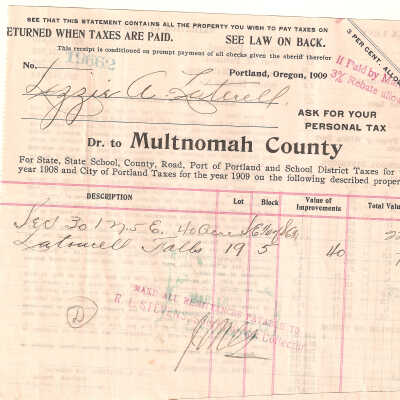 SEE THAT THIS STATEMENT CONTAINS ALL THE PROPERTY YOU WISH TO PAY TAXES ON
ETURNED WHEN TAXES ARE PAID. SEE LAW ON BACK.
This receipt is conditioned on prompt payment of all checks given the sheriff therefor
3 PER CENT. ALLO
No. 19662
Portland, Oregon, 1909
If Paid by M
3% Rebate allow
Lizzie A. Latorell
ASK FOR YOUR
PERSONAL TAX
Dr. to Multnomah County
For State, State School, County, Road, Port of Portland and School District Taxes for
year 1908 and City of Portland Taxes for the year 1909 on the following described proper
DESCRIPTION Lot Block Value of Improvements Total Valu
Sec 30 1 N. 5 E. 40 acre
Latourell Falls 19 5 40
MAKE ALL REMITTANCES PAYABLE TO
R. L. STEVENS, Collector
D